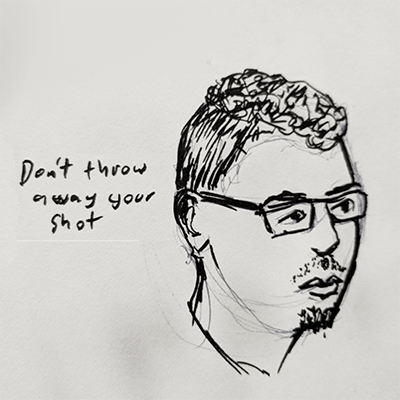 Don't throw
away your
shot